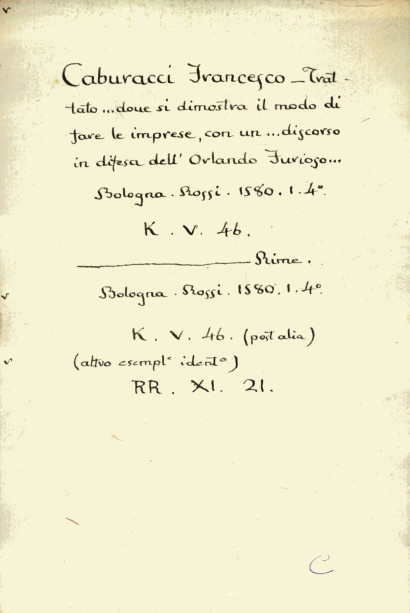 Caburacci Francesco – Trat-
tato...doue si dimostra il modo di
fare le imprese, con un ...discorso
in difesa dell' Orlando Furioso...
Bologna. Rossi. 1580. 1. 4°.
K. V. 46.
——— Rime.
Bologna. Rossi. 1580. 1. 4°.
K. V. 46. (post alia)
(altro esempl.e ident.o)
RR. XI. 21.
C